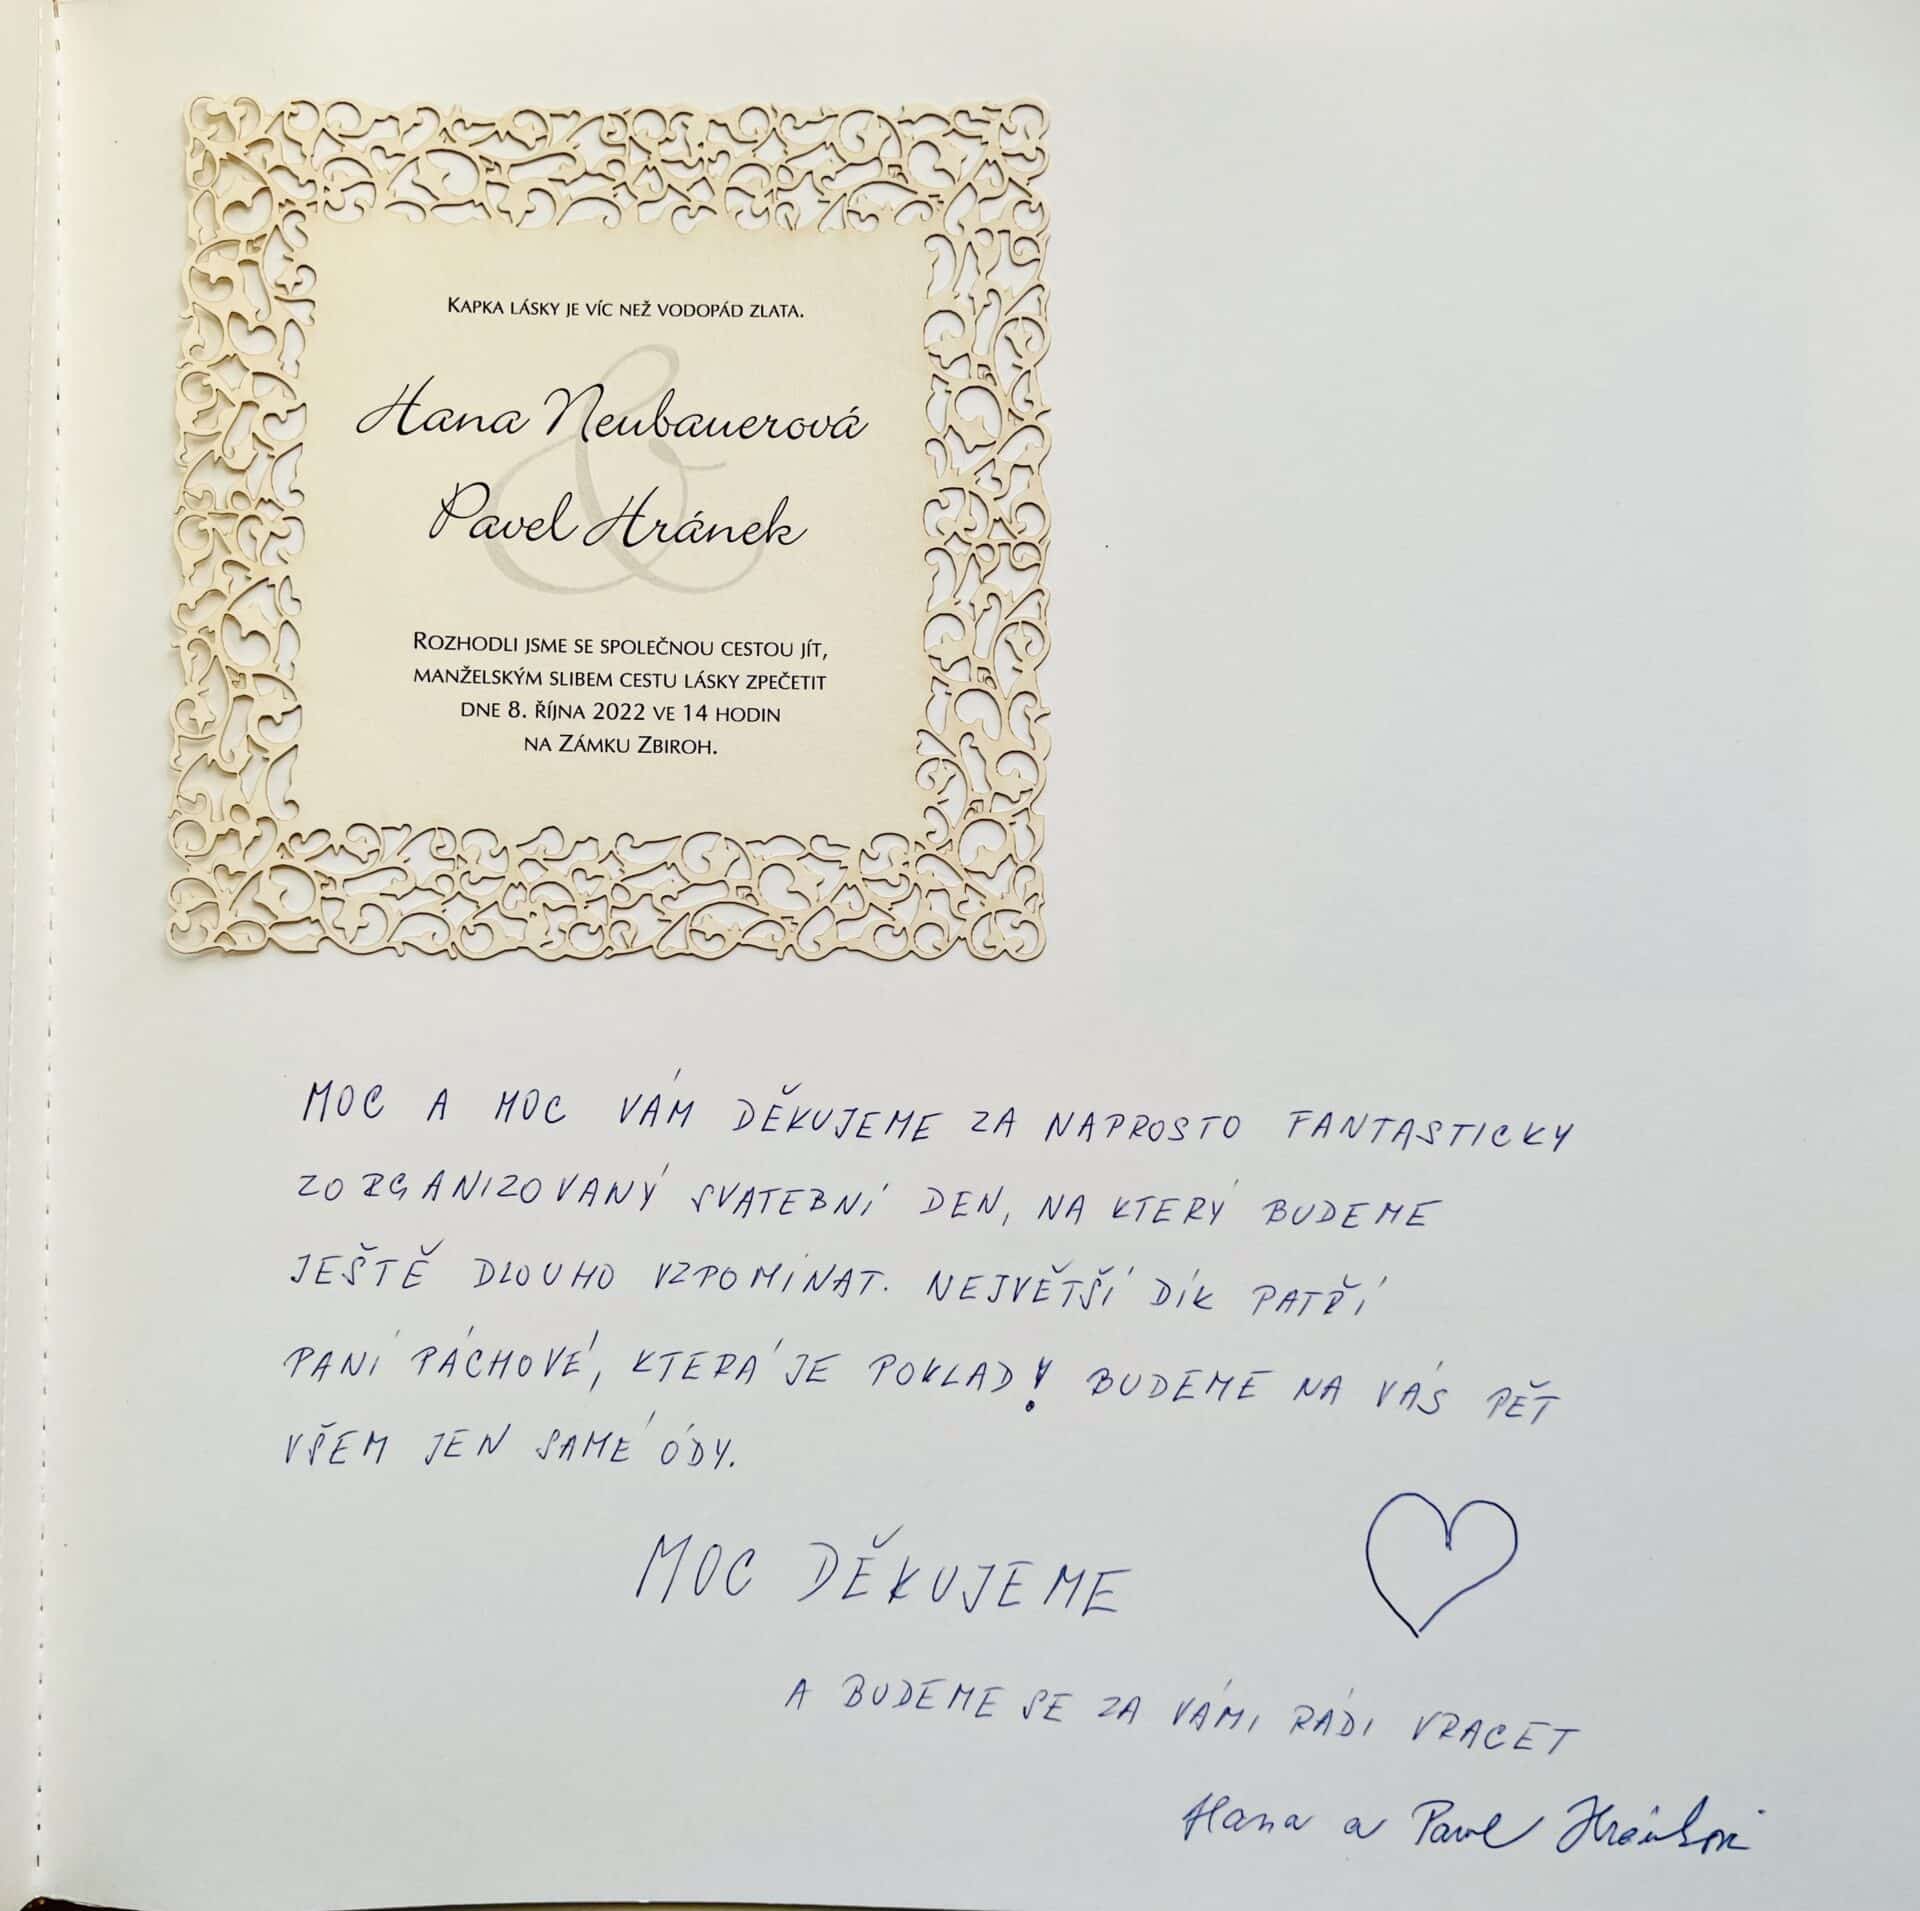 KAPKA LÁSKY JE VÍC NEŽ VODOPÁD ZLATA.
Hana Neubauerová
&
Pavel Hránek
ROZHODLI JSME SE SPOLEČNOU CESTOU JÍT,
MANŽELSKÝM SLIBEM CESTU LÁSKY ZPEČETIT
DNE 8. ŘÍJNA 2022 VE 14 HODIN
NA ZÁMKU ZBIROH.
MOC A MOC VÁM DĚKUJEME ZA NAPROSTO FANTASTICKY
ZORGANIZOVANÝ SVATEBNÍ DEN, NA KTERÝ BUDEME
JEŠTĚ DLOUHO VZPOMÍNAT. NEJVĚTŠÍ DÍK PATŘÍ
PANÍ PÁCHOVÉ, KTERÁ JE POKLAD! BUDEME NA VÁS PĚT
VŠEM JEN SAMÉ ÓDY.
MOC DĚKUJEME
A BUDEME SE ZA VÁMI RÁDI VRACET
Hana a Pavel Hránkovi